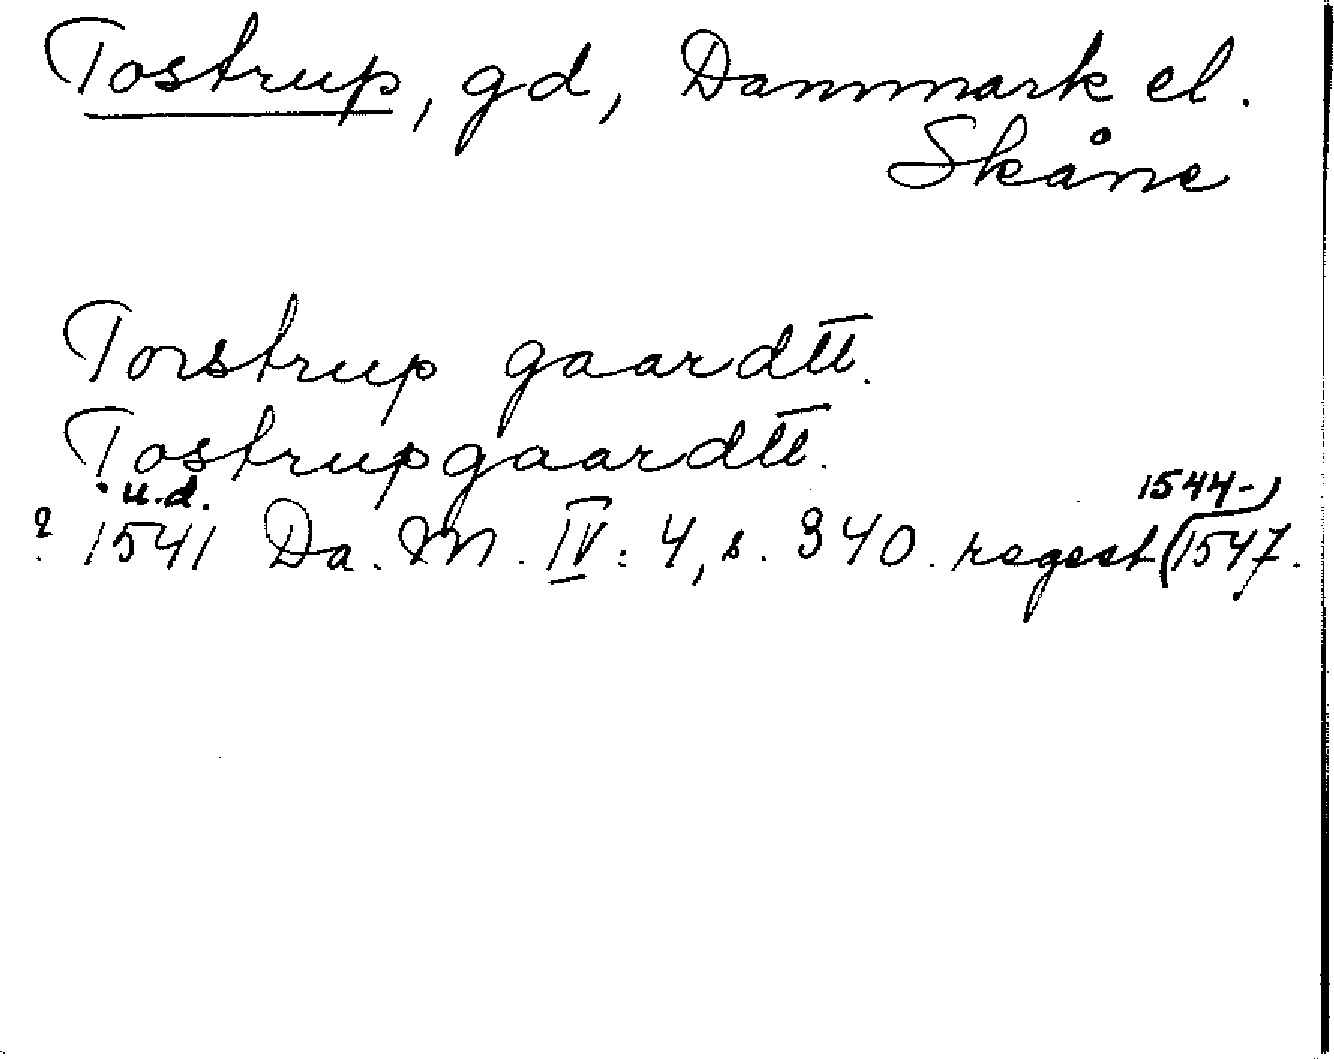 Tostrup, gd, Danmark el.
Skåne
Torstrup gaardtt.
Tostrupgaardtt.
u.d. 1544-
? 1541 Da. M. IV: 4, s. 340. regest (1547.